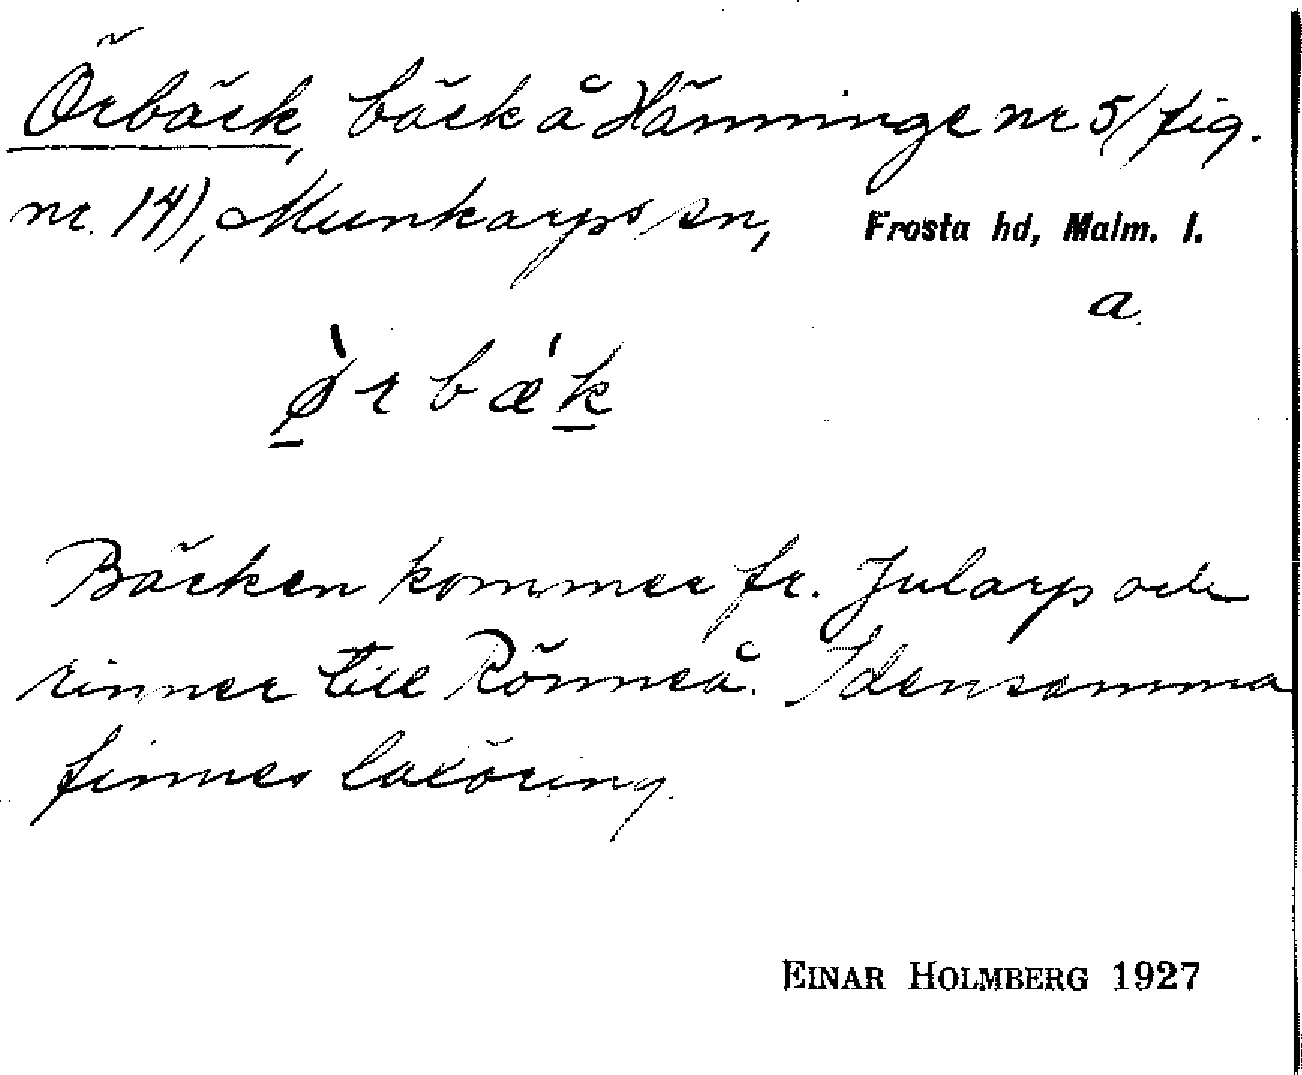 Örbäck, bäck å Hänninge nr 5/ fig.
nr. 14), Munkarps sn, Frosta hd, Malm. l.
a.
ø̀rbǽk
Bäcken kommer fr. Jularp och
rinner till Rönneå. I densamma
finnes laxöring.
EINAR HOLMBERG 1927